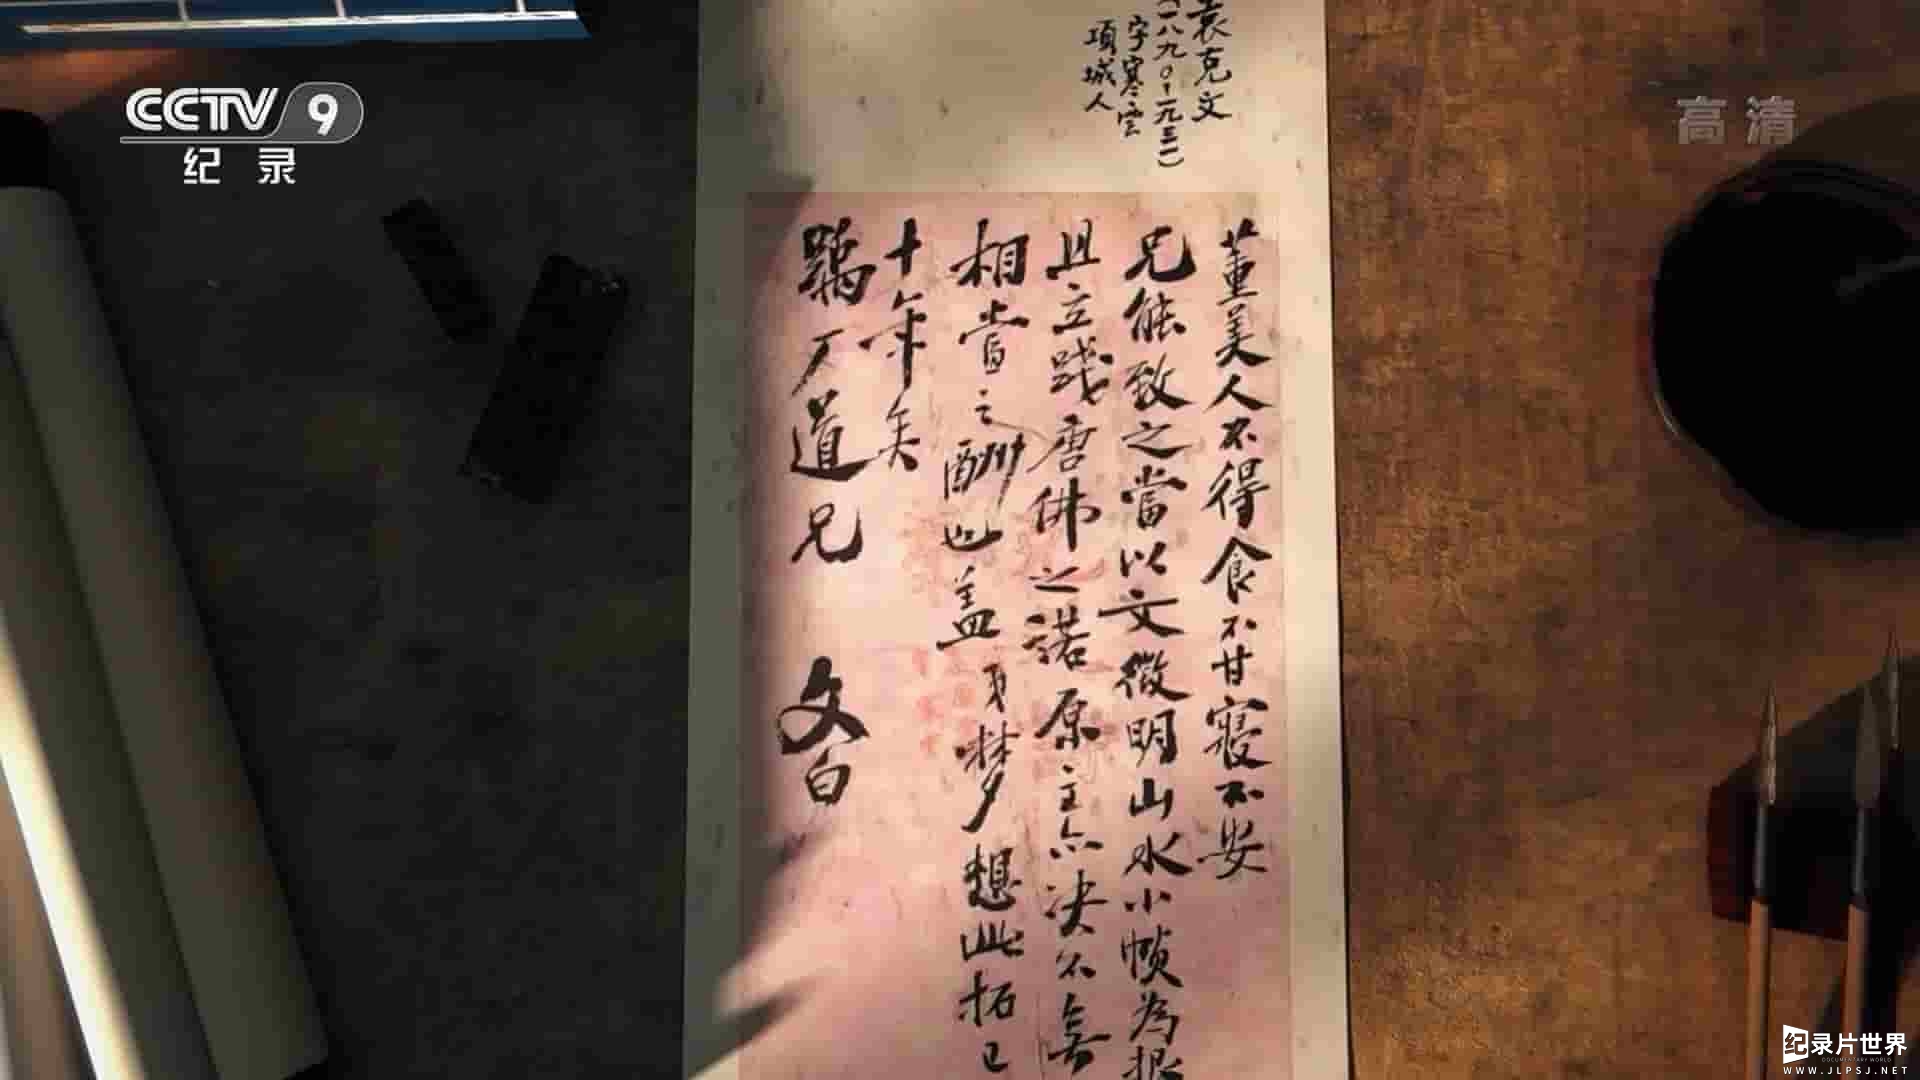 CCTV 9
纪录
高清
袁克文
(一八九〇-一九三一)
字寒雲
項城人
董美人不得食不甘寢不安
兄能致之當以文徵明山水小幀為報
且立踐唐佛之諾原主亦決不無
相當之酬也蓋夢想此拓已
十年矣
鶴厂道兄
文白
纪录片世界
DOCUMENTARY WORLD
WWW.JLPSJ.NET